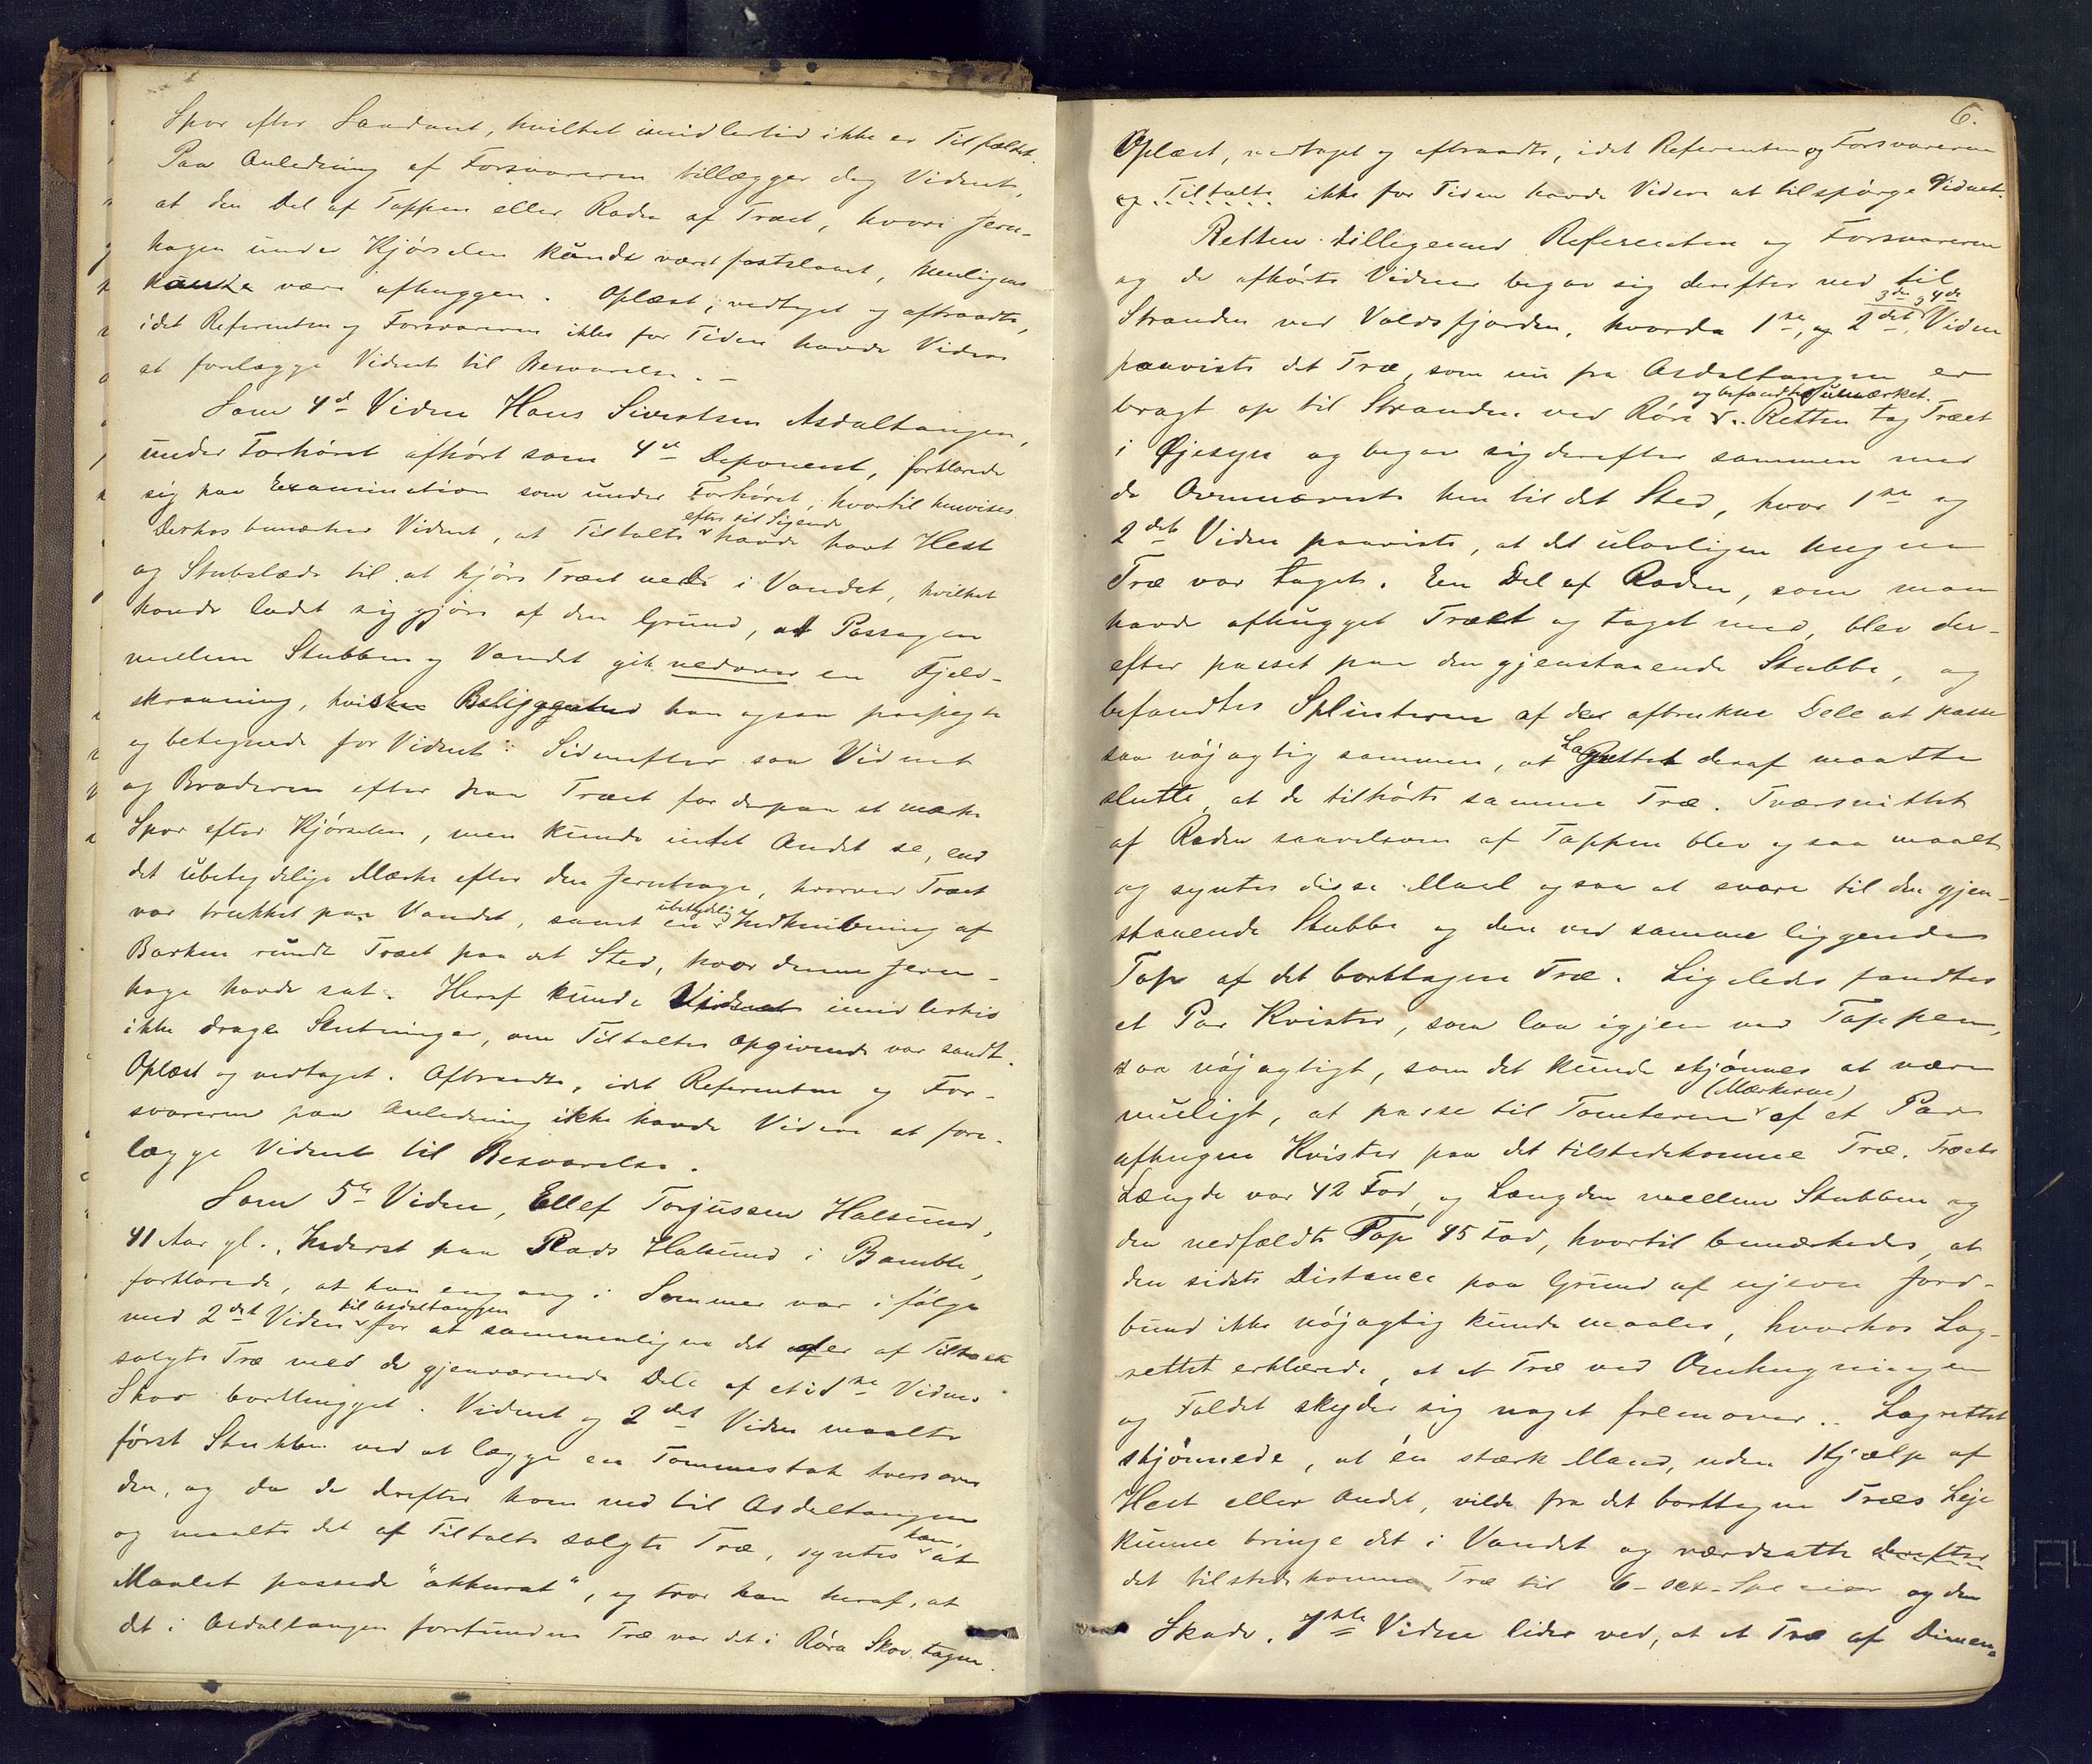 Spor efter Saadant, hvilket imidlertid ikke er Tilfældet.
Paa Anledning af Forsvareren tillægger dog Vidnet,
at den Del af Toppen eller Roden af Træet, hvori Jern-
hagen under Kjørselen kunde været fastslaaet, muligens
kunde være afhuggen. Oplæst, vedtaget og aftraadte,
idet Referenten og Forsvareren ikke for Tiden havde Videre
at forelægge Vidnet til Besvarelse. –
Som 4de Vidne Hans Sivertsen Asdaltangen,
under Forhøret afhørt som 4de Deponent, forklarede
sig paa Examination som under Forhøret, hvortil henvises.
Derhos bemærker Vidnet, at Tiltalte efter sit Sigende havde havt Hest
og Stubslæde til at kjøre Træet ned i Vandet, hvilket
havde ladet sig gjøre af den Grund, at Passagen
mellem Stubben og Vandet gik nedover en Fjeld-
skraaning, hvis Beliggenhed han ogsaa paapegte
og betegnede for Vidnet. Sidenefter saa Vidnet
og Broderen efter paa Træet for derpaa at mærke
Spor efter Kjørselen, men kunde intet Andet se, end
det ubetydelige Mærke efter den Jernhage, hvorved Træet
var trukket paa Vandet, samt en ubetydelig Indknibning af
Barken rundt Træet paa det Sted, hvor denne Jern-
hage havde sat. Heraf kunde Vidnet imidlertid
ikke drage Slutninger, om Tiltaltes Opgivende var sandt.
Oplæst og vedtaget. Aftraadte, idet Referenten og For-
svareren paa Anledning ikke havde Videre at fore-
lægge Vidnet til Besvarelse.
Som 5te Vidne, Ellef Torjussen Halsund,
41 Aar gl., Inderst paa Plads Halsund i Bamble,
forklarede, at han engang i Sommer var i følge
med 2det Vidne til Asdaltangen for at sammenligne det der af Tiltalte
solgte Træ med de gjenværende Dele af et i 1ste Vidnes
Skov borthugget. Vidnet og 2det Vidne maalte
først Stubben ved at lægge en Tommestok tvers over
den, og da de derefter kom ned til Asdaltangen
og maalte det af Tiltalte solgte Træ, syntes han, at
Maalet passede "akkurat", og tror han heraf, at
det i Asdaltangen forefundne Træ var det i Røra Skov tagne.
6.
Oplæst, vedtaget og aftraadte, idet Referenten og Forsvareren
og Tiltalte ikke for Tiden havde Videre at tilspørge Vidnet.
Retten tilligemed Referenten og Forsvareren
og de afhørte Vidner begav sig derefter ned til
Stranden ved Voldsfjorden, hvorda 1ste, og 2det, 3die og 4de Vidne
paaviste det Træ, som nu fra Asdaltangen er
bragt op til Stranden ved Røra og befandtes umærket. Retten tog Træet
i Øjesyn og begav sig derefter sammen med
de Ovennævnte hen til det Sted, hvor 1ste og
2det Vidne paaviste, at det ulovligen hugne
Træ var taget. En Del af Roden, som man
havde afhugget Træet og taget med, blev der-
efter passet paa den gjenstaaende Stubbe, og
befandtes Splinterne af den afbrukne Dele at passe
saa nøjagtig sammen, at Lagrettet deraf maatte
slutte, at de tilhørte samme Træ. Tværsnittet
af Roden saavelsom af Toppen blev ogsaa maalt
og syntes disse Maal ogsaa at svare til den gjen-
staaende Stubbe og den ved samme liggende
Top af det borttagne Træ. Ligeledes fandtes
et Par Kvister, som laa igjen ved Toppen,
saa nøjagtigt, som det kunde skjønnes at være
muligt, at passe til Tomterne (Mærkerne) af et Par
afhugne Kvister paa det tilstedekomne Træ. Træets
Længde var 42 Fod, og Længden mellem Stubben og
den nedfældte Top 45 Fod, hvortil bemærkedes, at
den sidste Distance paa Grund af ujevn Jord-
bund ikke nøjagtig kunde maales, hvorhos Lag-
rettet erklærede, at et Træ ved Omhugningen
og Faldet skyder sig noget fremover. Lagrettet
skjønnede, at én stærk Mand, uden Hjælp af
Hest eller Andet, vilde fra det borttagne Træs Leje
kunne bringe det i Vandet og værdsatte derefter
det tilstedekomne Træ til 6 – sex – Specier og den
Skade, 1ste Vidne lider ved, at et Træ af Dimen-